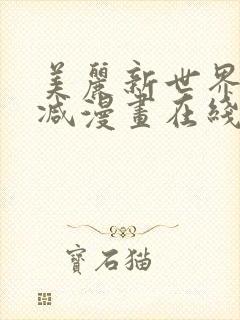 美麗新世界
減漫畫在綫
寶石猫